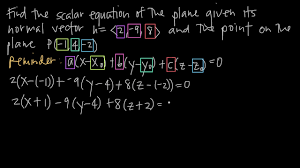 Find the scalar equation of the plane given its
normal vector n= <2,-9,8> and the point on the
plane P(-1,4,-2)
Reminder: a(x-x₀)+b(y-y₀)+c(z-z₀)=0
2(x-(-1))+-9(y-4)+8(z-(-2))=0
2(x+1)-9(y-4)+8(z+2)=